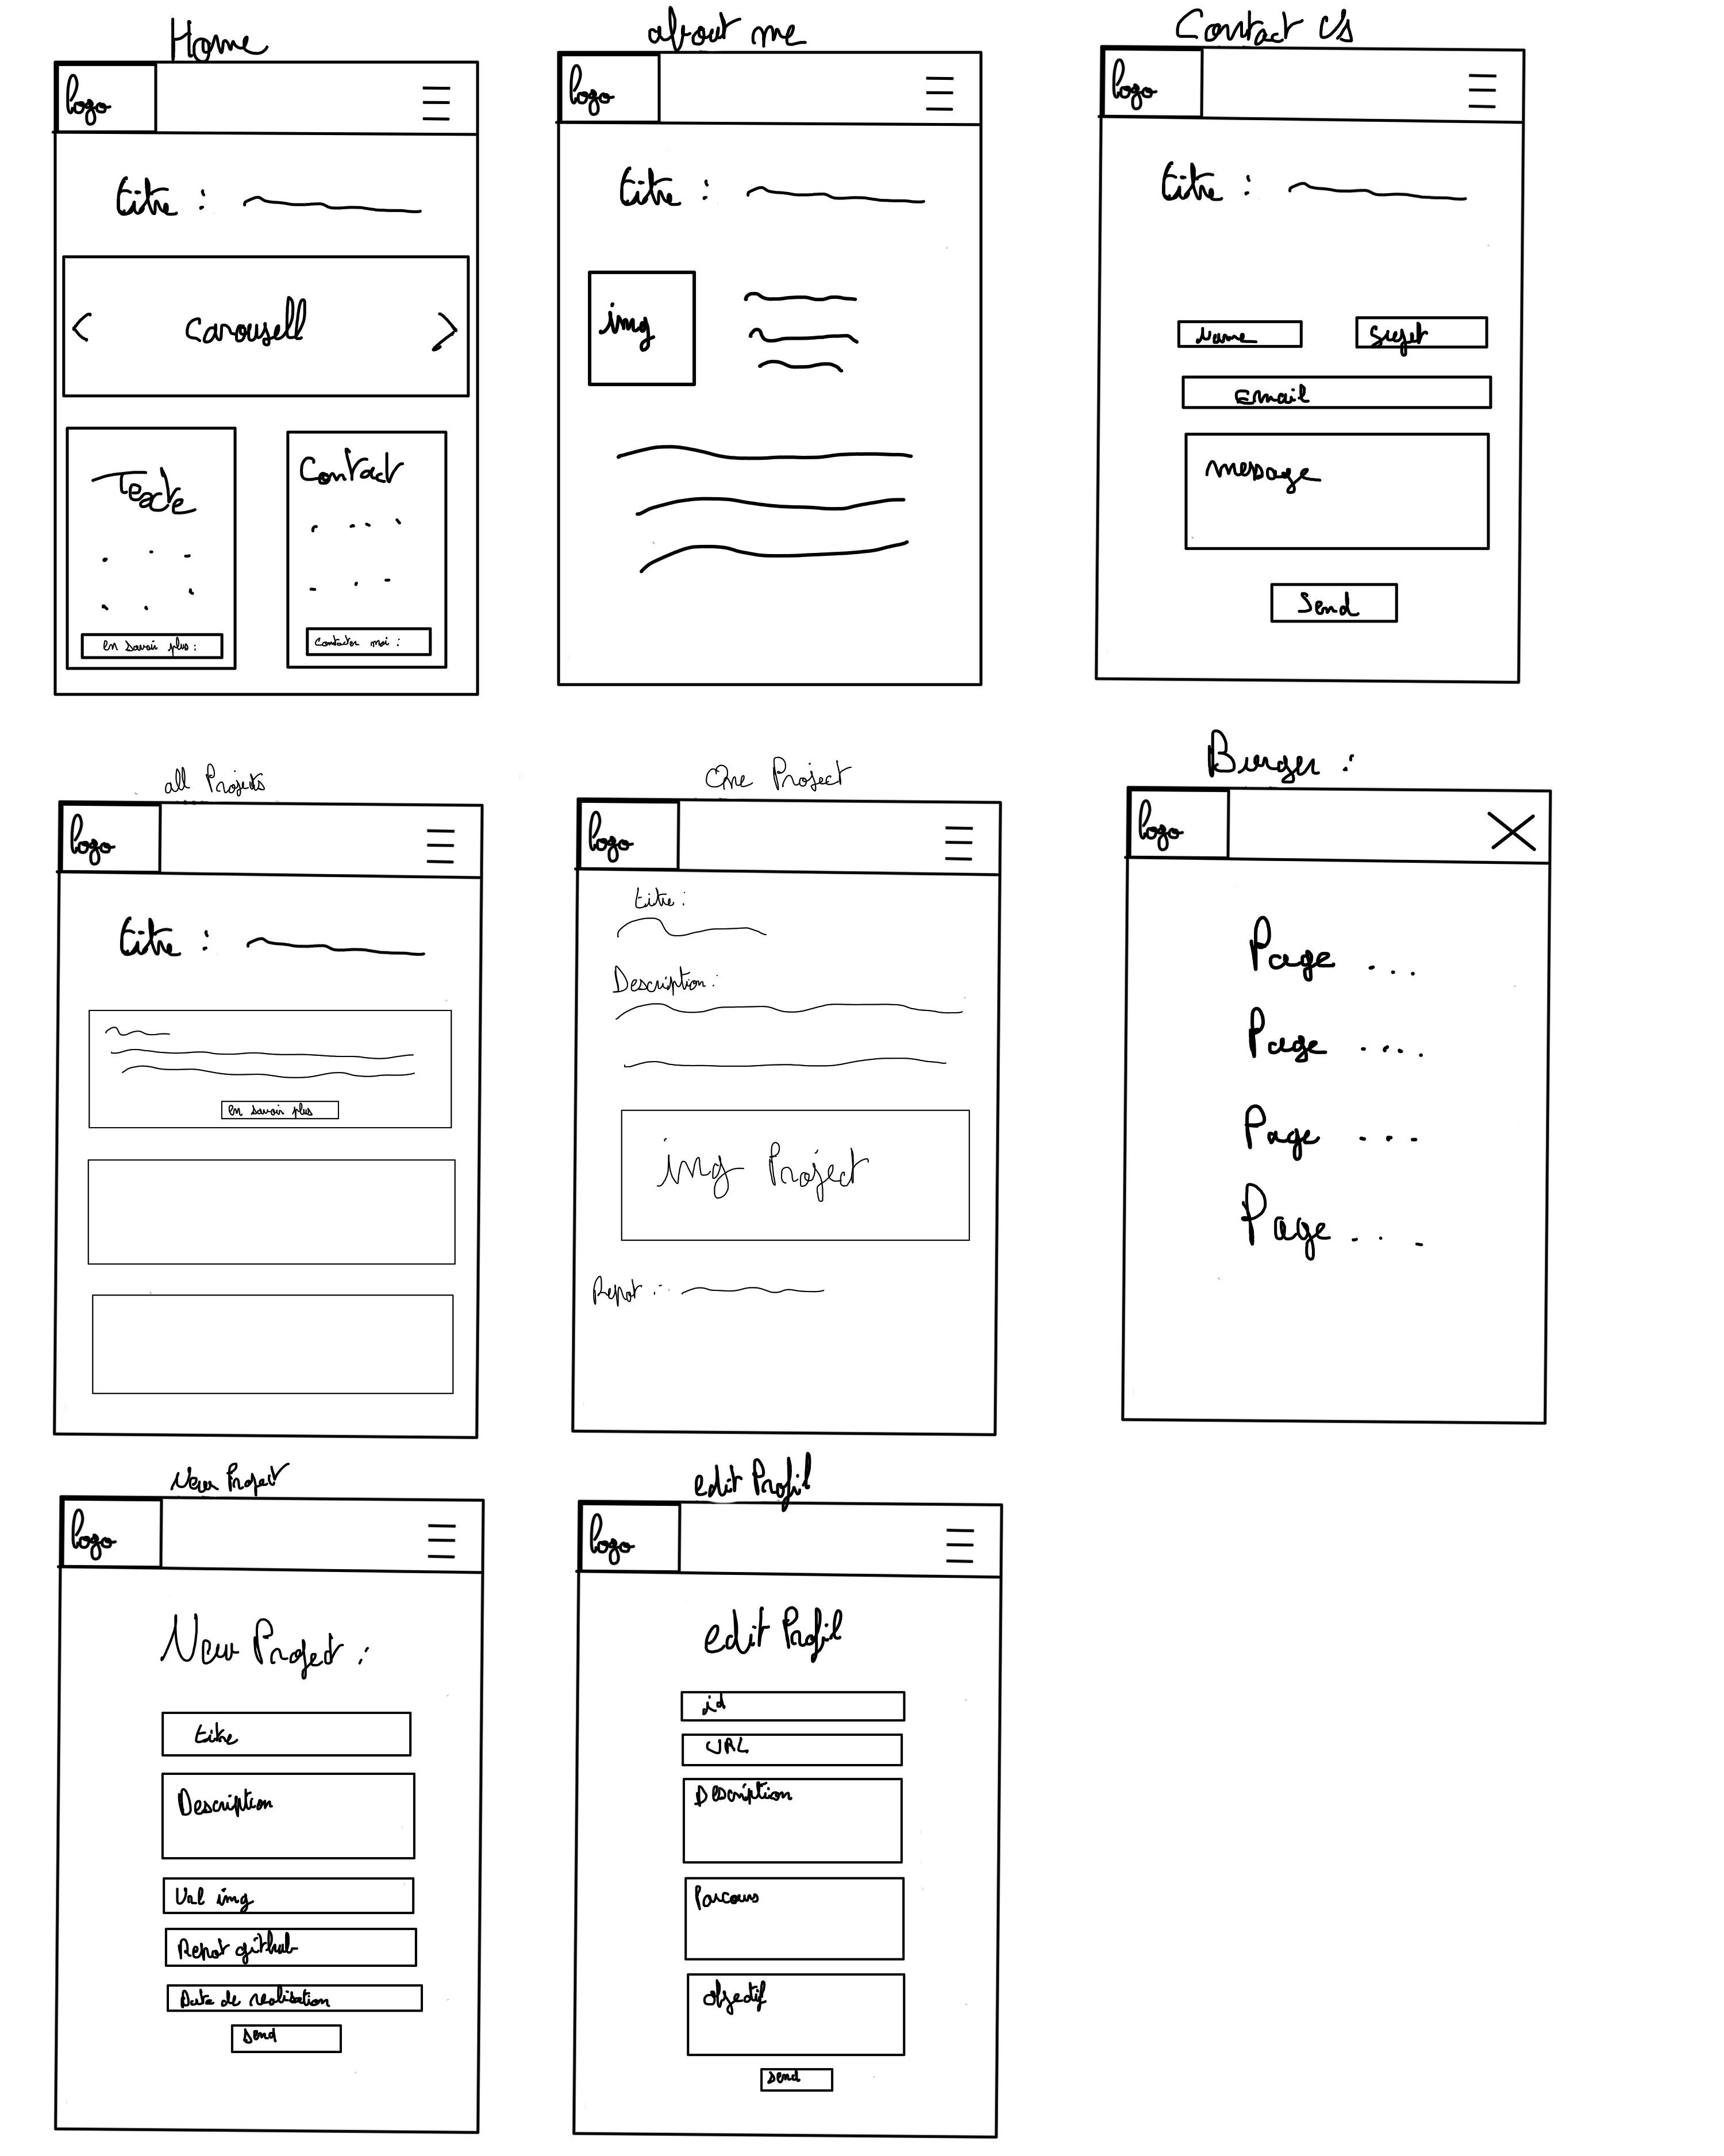 Home
logo
titre :
Carousell
Texte
en savoir plus :
Contact
Contacter moi :
about me
logo
titre :
img
Contact Us
logo
titre :
Name
Sujet
Email
message
Send
all Projects
logo
titre :
en savoir plus
One Project
logo
titre :
Description :
img Project
Repot :
Burger :
logo
Page ...
Page ....
Page ...
Page ...
New Project
logo
New Project :
titre
Description
Url img
Repot github
Date de realisation
Send
edit Profil
logo
edit Profil
id
URL
Description
Parcours
objectif
Send